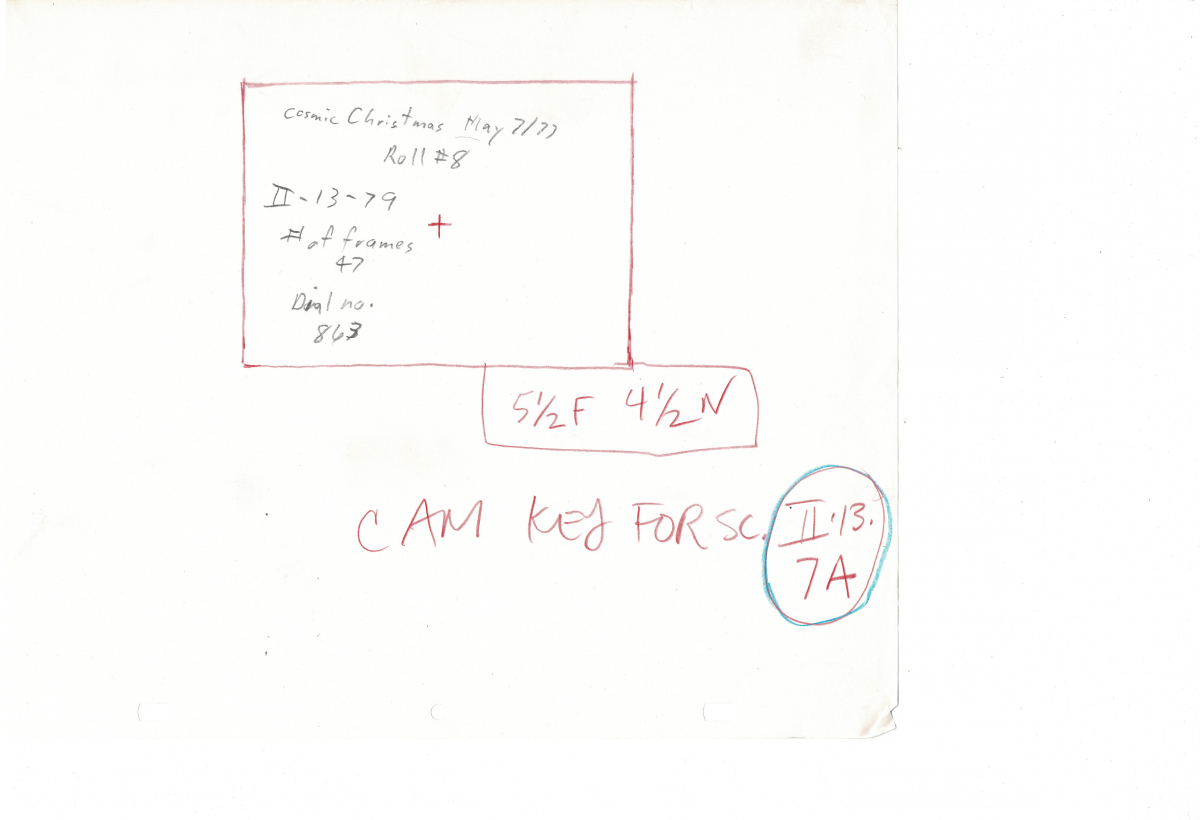 Cosmic Christmas May 7/77
Roll #8
II-13-79
# of frames
47
Dial no.
863
5½F 4½N
CAM KEY FOR SC. II·13.
7A